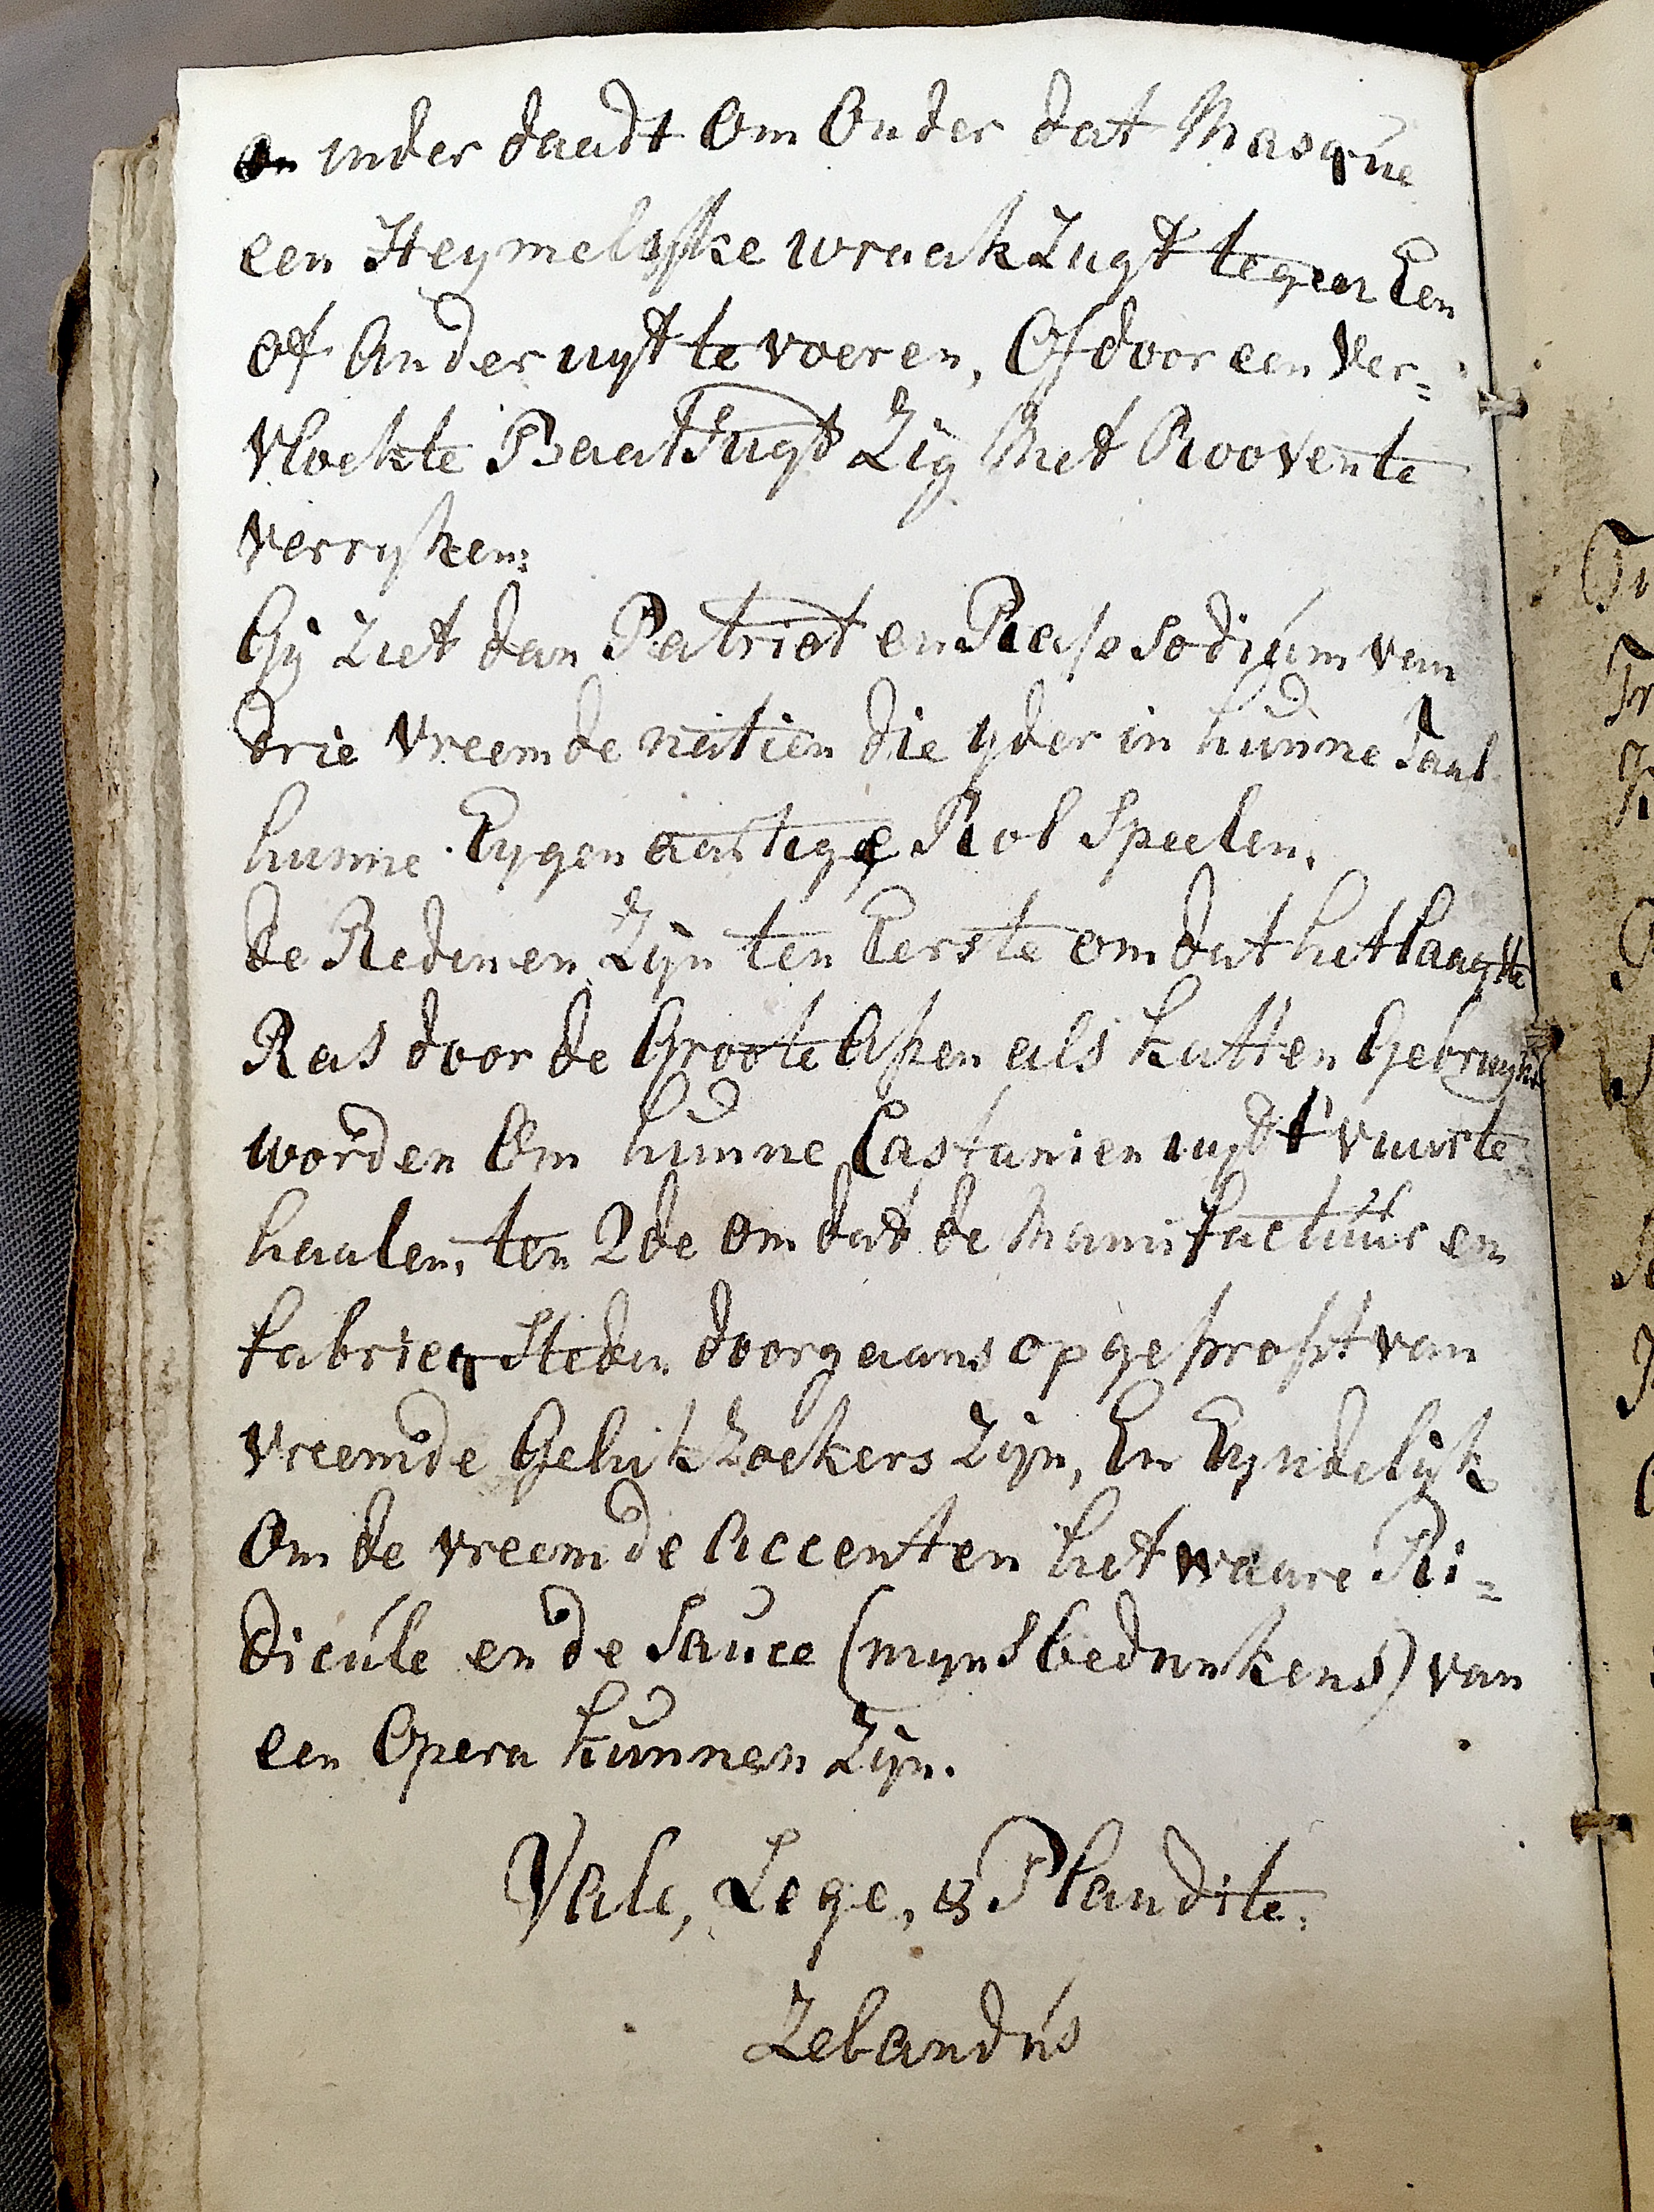 en inder daadt Om Onder dat Masque
een Heymelijke wraak Zugt tegen Een
of Ander uyt te voeren, Of door een Ver=
vloekte Baat Zugt Zig Met Rooven te
verryken:
Gij Ziet dan Patriot en Rapsodium van
drie Vreemde natien die yder in hunne Taal
hunne Eygen aartige Rol Speelen.
de Redenen Zijn ten Eerste om dat het laagste
Ras door de Groote Apen als katten Gebruykt
worden Om hunne Castanien uyt 't vuur te
haalen, ten 2de om dat de Manufactuur en
fabrieq Steden doorgaans opgepropt van
vreemde Geluk Zoekers Zijn, En Eyndelijk
Om de vreemde Accenten het waare Ri=
dicule en de Sauce (mijns bedunkens) van
een Opera kunnen Zijn.
Vale, Lege, & Plaudite.
Zelandus